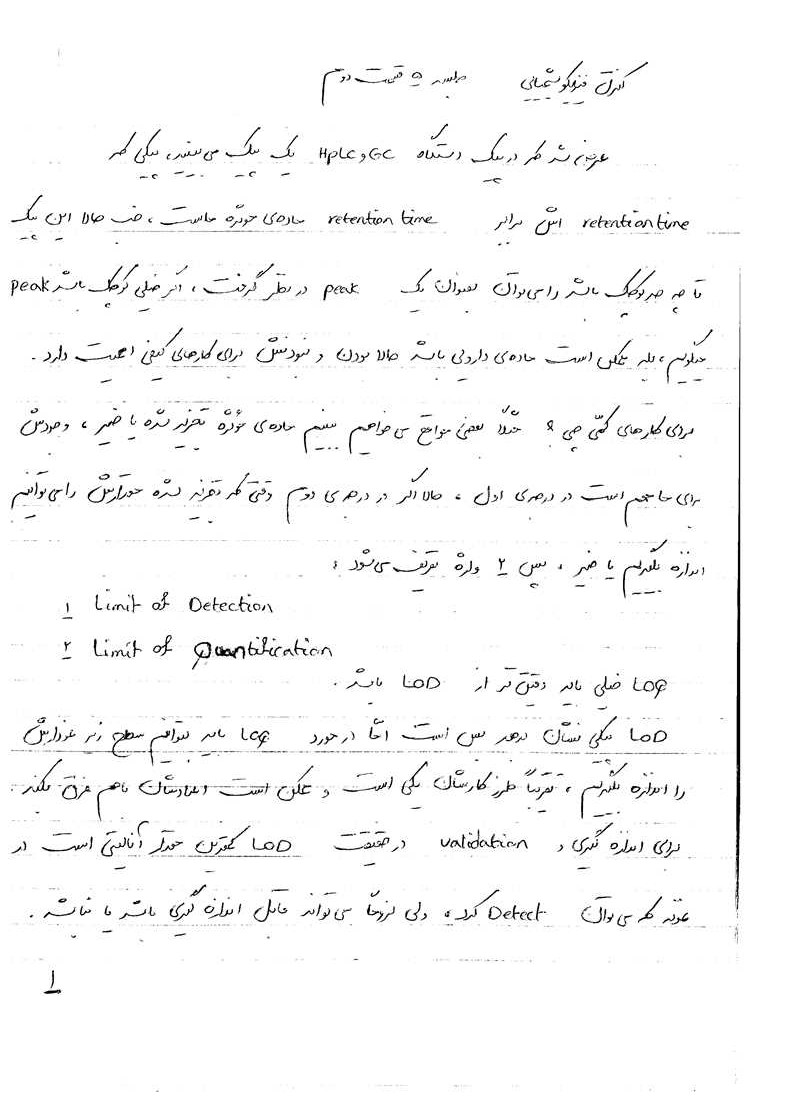 کنترل فیزیکوشیمیایی جلسه ۵ قسمت دوم
عرض شد که در یک دستگاه GC و HPLC یک پیک می‌بینند، پیکی که
retention time اش برابر retention time ماده‌ی موثره ماست، خب حالا این پیک
تا چه حد کوچک باشد را می‌توان بعنوان یک peak در نظر گرفت، اگر خیلی کوچک باشد peak
میگوئیم، بله ممکن است ماده‌ی دارویی باشد حالا بودن و نبودنش برای کارهای کیفی اهمیت دارد.
برای کارهای کمّی چی؟ مثلاً بعضی مواقع می‌خواهیم ببینیم ماده‌ی مؤثره تجزیه شده یا خیر، وجودش
برای ما مهم است در درجه‌ی اول، حالا اگر در درجه‌ی دوم وقتی که تجزیه شده مقدارش را می‌توانیم
اندازه بگیریم یا خیر، پس ۲ واژه تعریف می‌شود:
۱ Limit of Detection
۲ Limit of Quantification
LOQ خیلی باید دقیق‌تر از LOD باشد.
LOD پیکی نشان بدهد بس است امّا در مورد LOQ باید بتوانیم سطح زیر نمودارش
را اندازه بگیریم، تقریباً طرز کارشان یکی است و ممکن است اعدادشان باهم فرق بکند.
برای اندازه گیری و validation در حقیقت LOD کمترین مقدار آنالیتی است در
نمونه که می‌توان Detect کرد، ولی لزوماً می‌تواند قابل اندازه گیری باشد یا نباشد.
۱